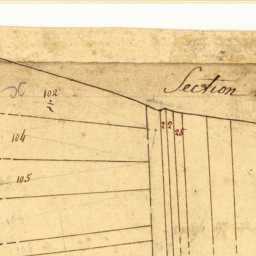 Section
102
1/2
104
105
22
25